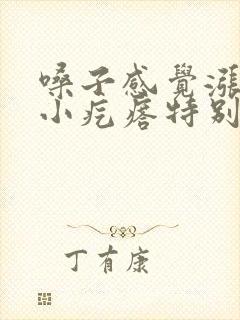 嗓子感覺漲
小疙瘩特别
丁有康